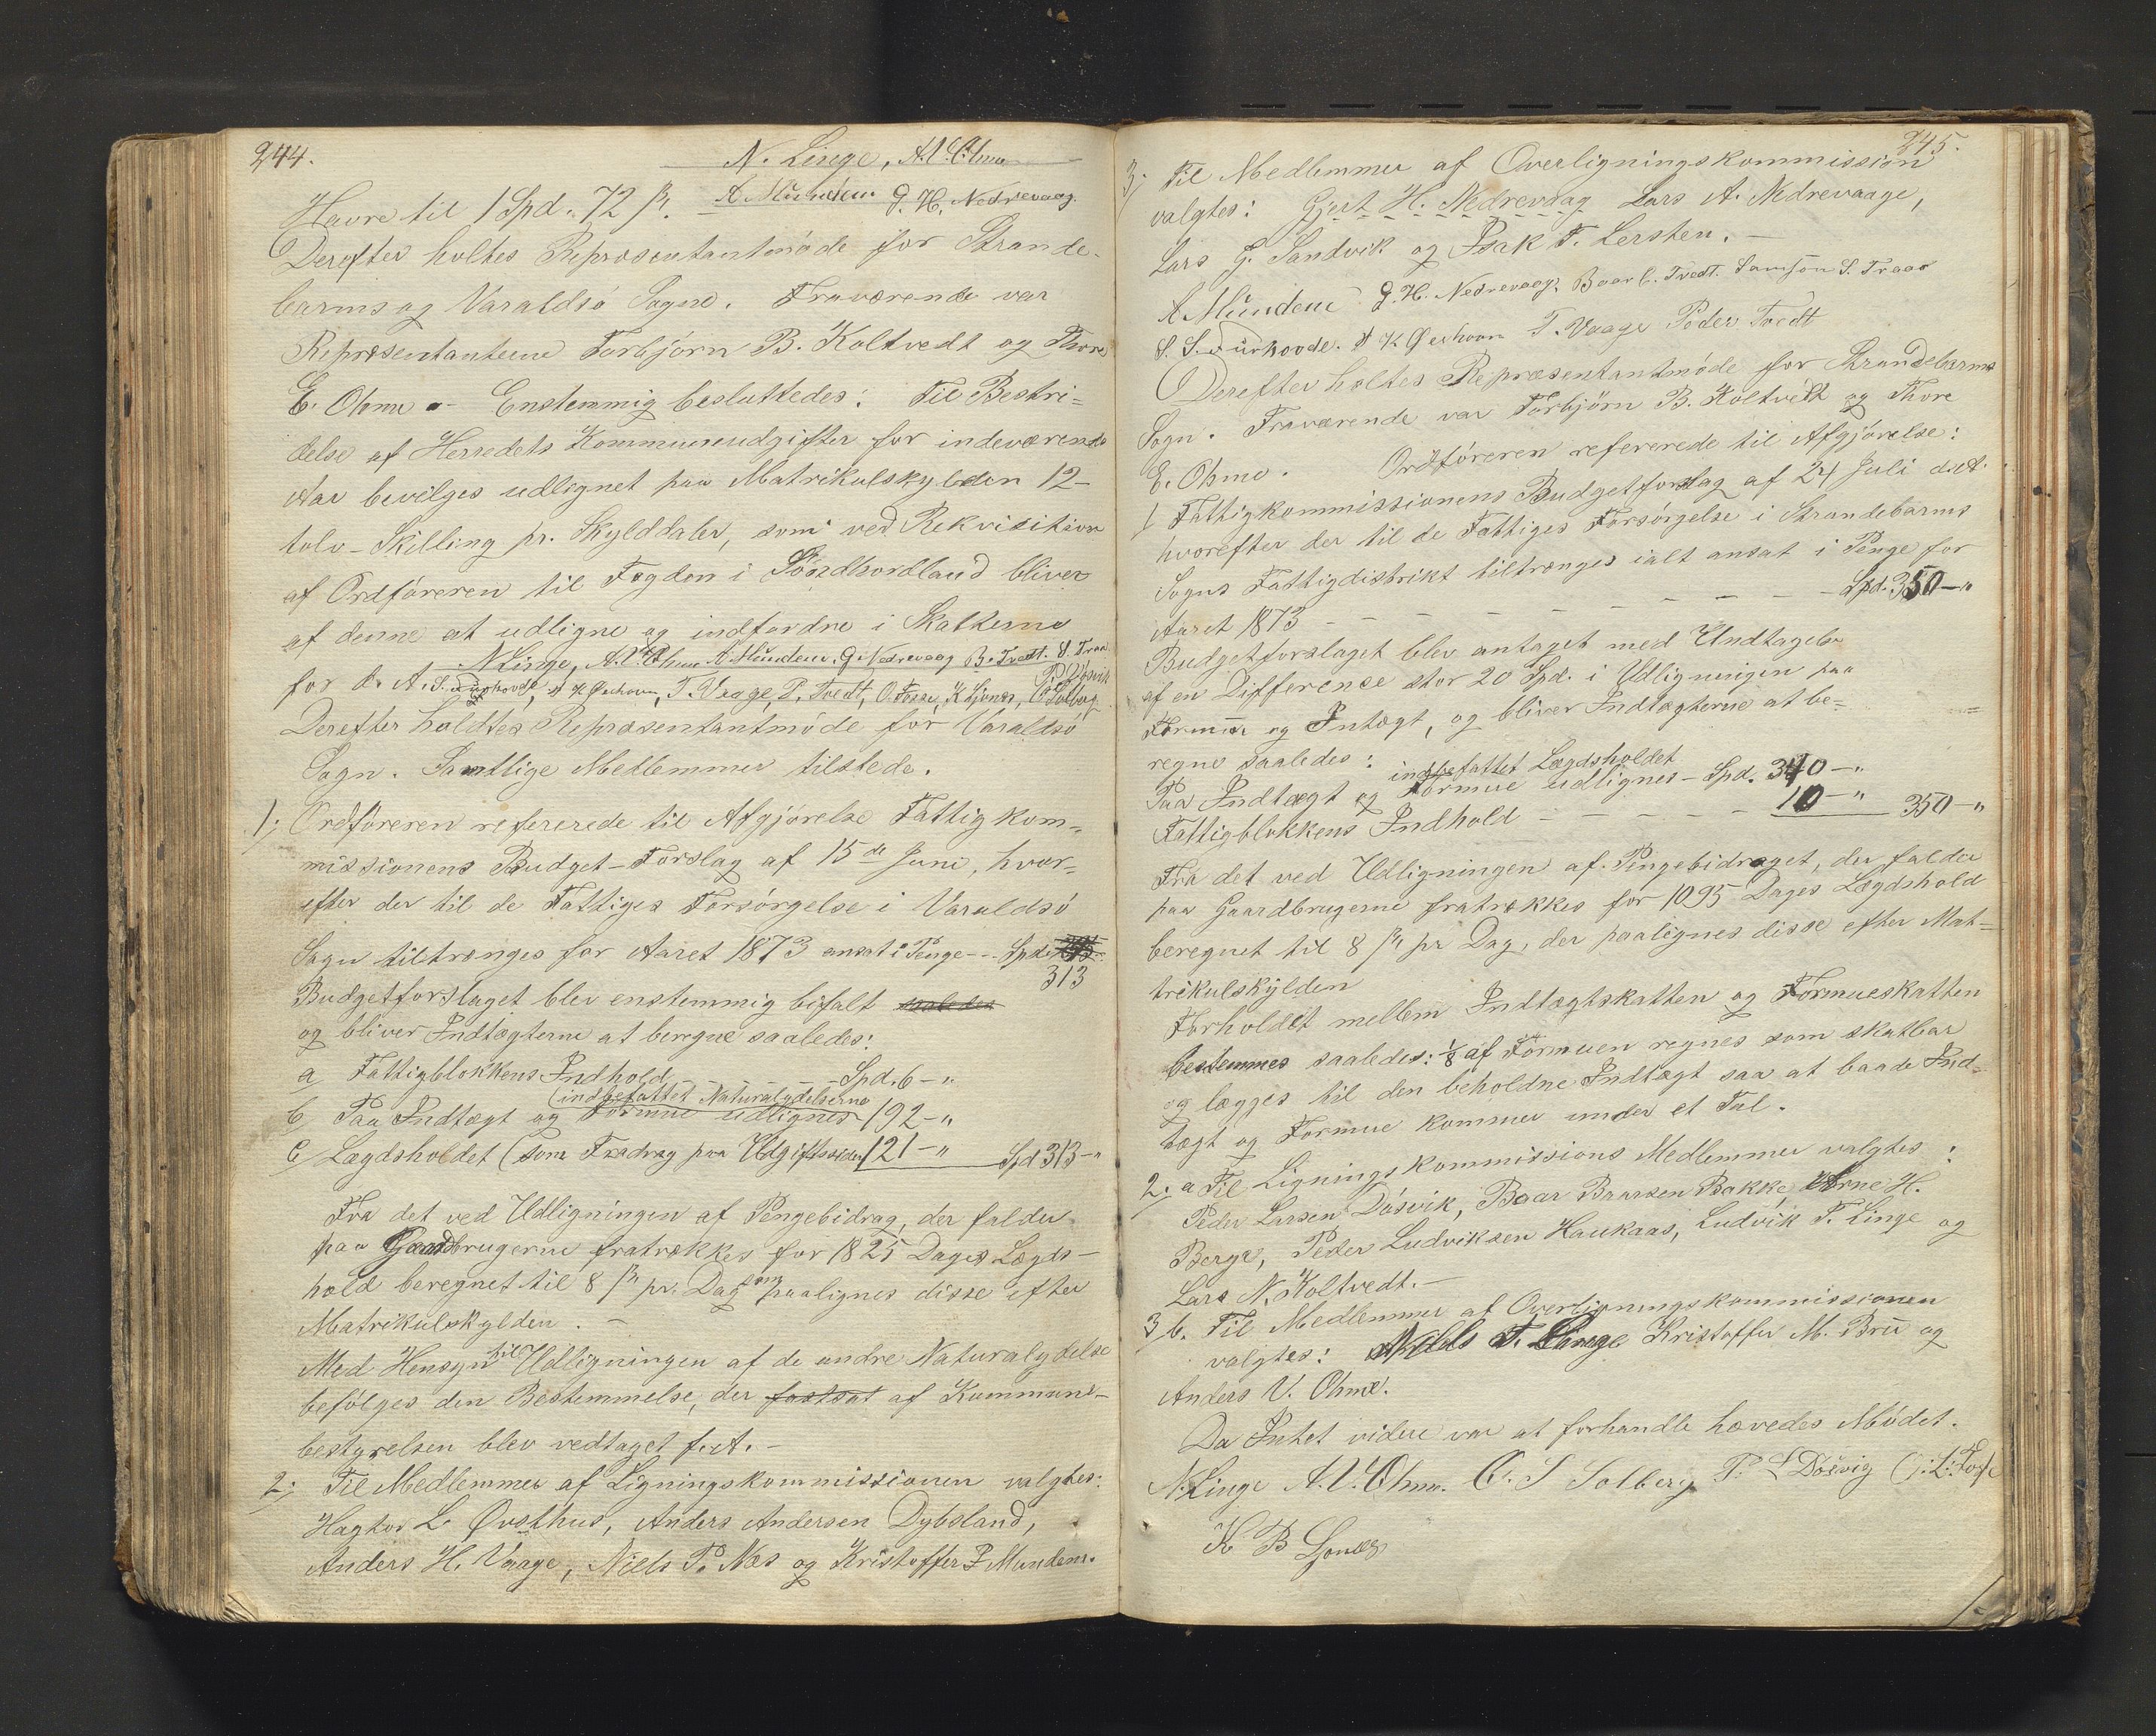 244.
N. Linge, A. V. Ohme
Havre til 1 Spd. 72 ß. A Mundem G. H. Nedrevaag.
Derefter holtes Repræsentantmöde for Strande-
barms og Varaldsö Sogne. Fraværende var
Repræsentanterne Torbjörn B. Koltvedt og Thore
E. Ohme - Enstemmig besluttedes: Til Bestri=
delse af Herredets Kommuneudgifter for indeværende
Aar bevilges udlignet paa Matrikulskylden 12-
tolv - Skilling pr. Skylddaler, som ved Rekvisition
af Ordföreren til Fogden i Söndhordland bliver
af denne at udligne og indfordre i Skatterne
N Linge, A. V. Ohme A Mundem. G. Nedrevaag B. Tvedt. S. Traa
for d. A. T. Vaage, P. Tvedt, O. Fosse,
Derefter holdtes Repræsentantmöde for Varaldsö
Sogn. Samtlige Medlemmer tilstede.
1; Ordföreren refererede til Afgjörelse Fattigkom=
missionens Budget-Forslag af 15de Juni, hvor=
efter der til de Fattiges Forsörgelse i Varaldsö
Sogn tiltrænges for Aaret 1873 ansat i Penge - - Spd.
313
Budgetforslaget blev enstemmig bifalt
og bliver Indtægterne at beregne saaledes:
a Fattigblokkens Indhold - - - - Spd. 6 - "
(indbefattet Naturalydelserne
b, Paa Indtægt og Formue udlignes 192 - "
c, Lægdsholdet (som Fradrag paa Udgiftssiden 121 - " Spd 313 - "
Fra det ved Udligningen af Pengebidrag, der falder
paa Gaardbrugerne fratrækkes for 1825 Dages Lægds-
hold beregnet til 8 ß pr. Dag som paalignes disse efter
Matrikulskylden. -
Med Hensyn til Udligningen af de andre Naturalydelse
befölges den Bestemmelse, der fastsat af Kommune-
bestyrelsen blev vedtaget f. A. -
2; Til Medlemmer af Ligningskommissionen valgtes:
Hagtor L. Øvsthus, Anders Andersen Dybsland,
Anders H. Vaage, Niels P. Næs og Kristoffer P Mundem.
245.
3; Til Medlemmer af Overligningskommission
valgtes: Gjert H. Nedrevaag Lars A. Nedrevaage,
Lars G. Sandvik og Isak T. Lersten. -
A Mundem G. H. Nedrevaag, Baar C. Tvedt. Samson S. Traa
T. Vaage Peder Tvedt
Derefter holtes Repræsentantmöde for Strandebarms
Sogn. Fraværende var Torbjörn B. Koltvedt og Thore
E. Ohme. Ordföreren refererede til Afgjörelse:
1 Fattigkommissionens Budgetforslag af 24 Juli d. A.
hvorefter der til de Fattiges Forsörgelse i Strandebarms
Sogns Fattigdistrikt tiltrænges ialt ansat i Penge for
Aaret 1873 - - - - - - - - - Spd. 350 - "
Budgetforslaget blev antaget med Undtagelse
af en Difference stor 20 Spd. i Udligningen paa
Formue og Intægt, og bliver Indtægterne at be=
regne saaledes:
indbefattet Lægdsholdet
Paa Indtægt og Formue udlignes - Spd. 340 - "
Fattigblokkens Indhold - - - - - 10 - " 350 - "
Fra det ved Udligningen af Pengebidraget, der falder
paa Gaardbrugerne fratrækkes for 1095 Dages Lægdshold
beregnet til 8 ß pr Dag, der paalignes disse efter Mat=
trikulskylden
Forholdet mellem Indtægtskatten og Formueskatten
bestemmes saaledes: 1/8 af Formuen regnes som skatbar
og lægges til den beholdne Indtægt saa at baade Ind=
tægt og Formue kommer under et Tal.
2; a Til Ligningskommissions Medlemmer valgtes:
Peder Larsen Dösvik, Baar Baarsen Bakke, Arne H.
Berge, Peder Ludviksen Haukaas, Ludvik T. Linge og
Lars N. Koltvedt. -
3 b. Til Medlemmer af Overligningskommissionen
valgtes: Niels T. Linge Kristoffer M. Bru og
Anders V. Ohme.
Da Intet videre var at forhandle hævedes Mödet.
N. Linge A. V. Ohme. O. S Solberg P. L Dösvig O: L: Fosse
K B Gjonæs